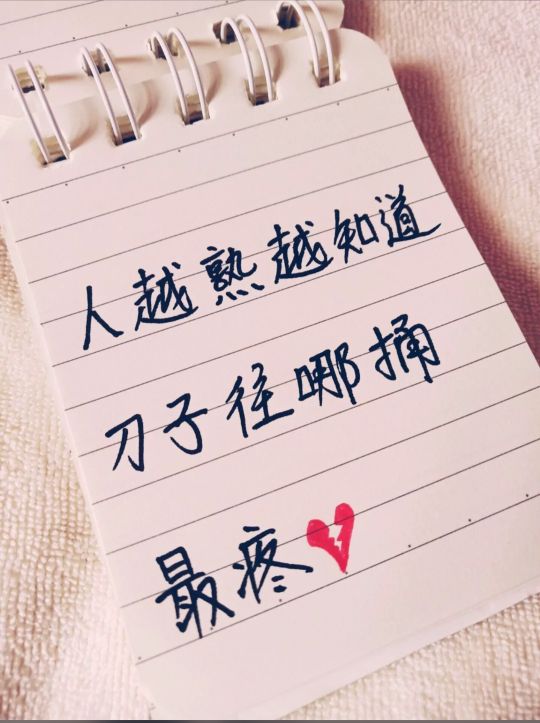 人越熟越知道
刀子往哪捅
最疼